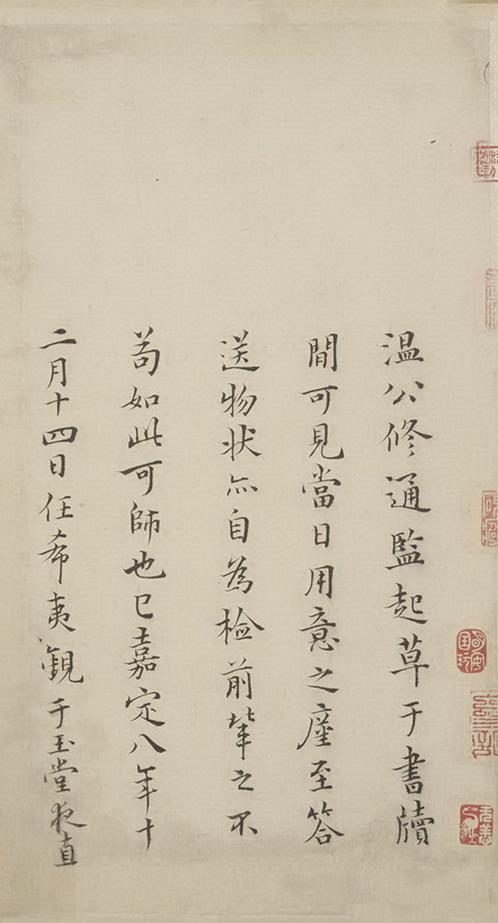 溫公修通監起草于書牘
間可見當日用意之𢈔至答
送物狀亦自為檢前輩之不
苟如此可師也已嘉定八年十
二月十四日任希夷觀于玉堂夜直